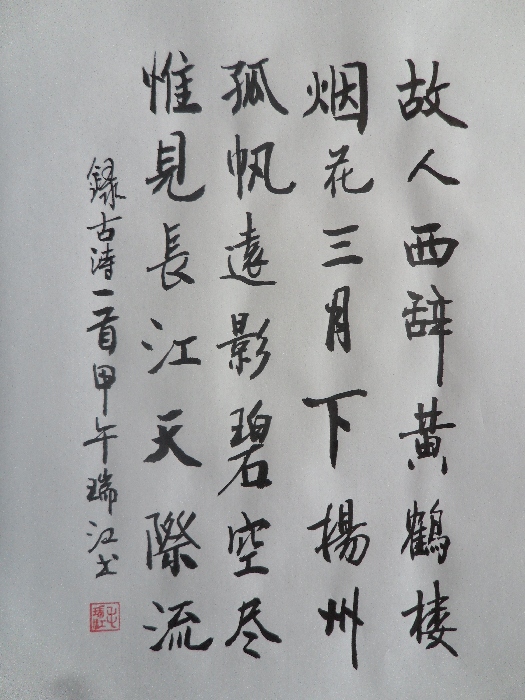 故人西辞黄鶴楼
烟花三月下揚州
孤帆遠影碧空尽
惟見長江天際流
録古诗一首甲午瑞江书